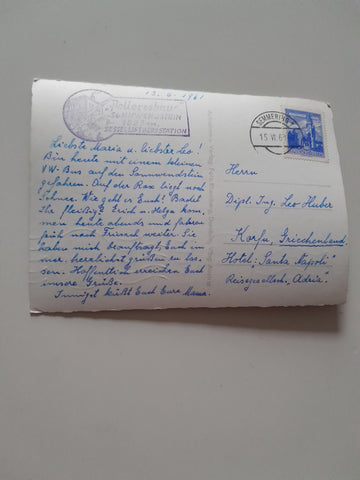 13. 6. 1961
"Pollereshaus"
SONNWENDSTEIN
SESSELLIFT BERGSTATION
SEMMERING
15. VI. 61
Liebste Maria u. liebster Leo!
Bin heute mit einem kleinen
VW-Bus auf den Sonnwendstein
gefahren. Auf der Rax liegt noch
Schnee. Wie geht es Euch? Badet
Ihr fleißig? Erich u. Helga kom,
men heute abends und fahren
früh nach Friesach weiter. Sie
haben mich beauftragt, Euch im
mer herzlichst grüßen zu las,
sen. Hoffentlich erreichen Euch
unsere Grüße.
Innigst küßt Euch Eure Mama.
Herrn
Dipl. Ing. Leo Huber
Korfu, Griechenland
Hotel: "Santa Napoli"
Reisegesellsch. "Adria".